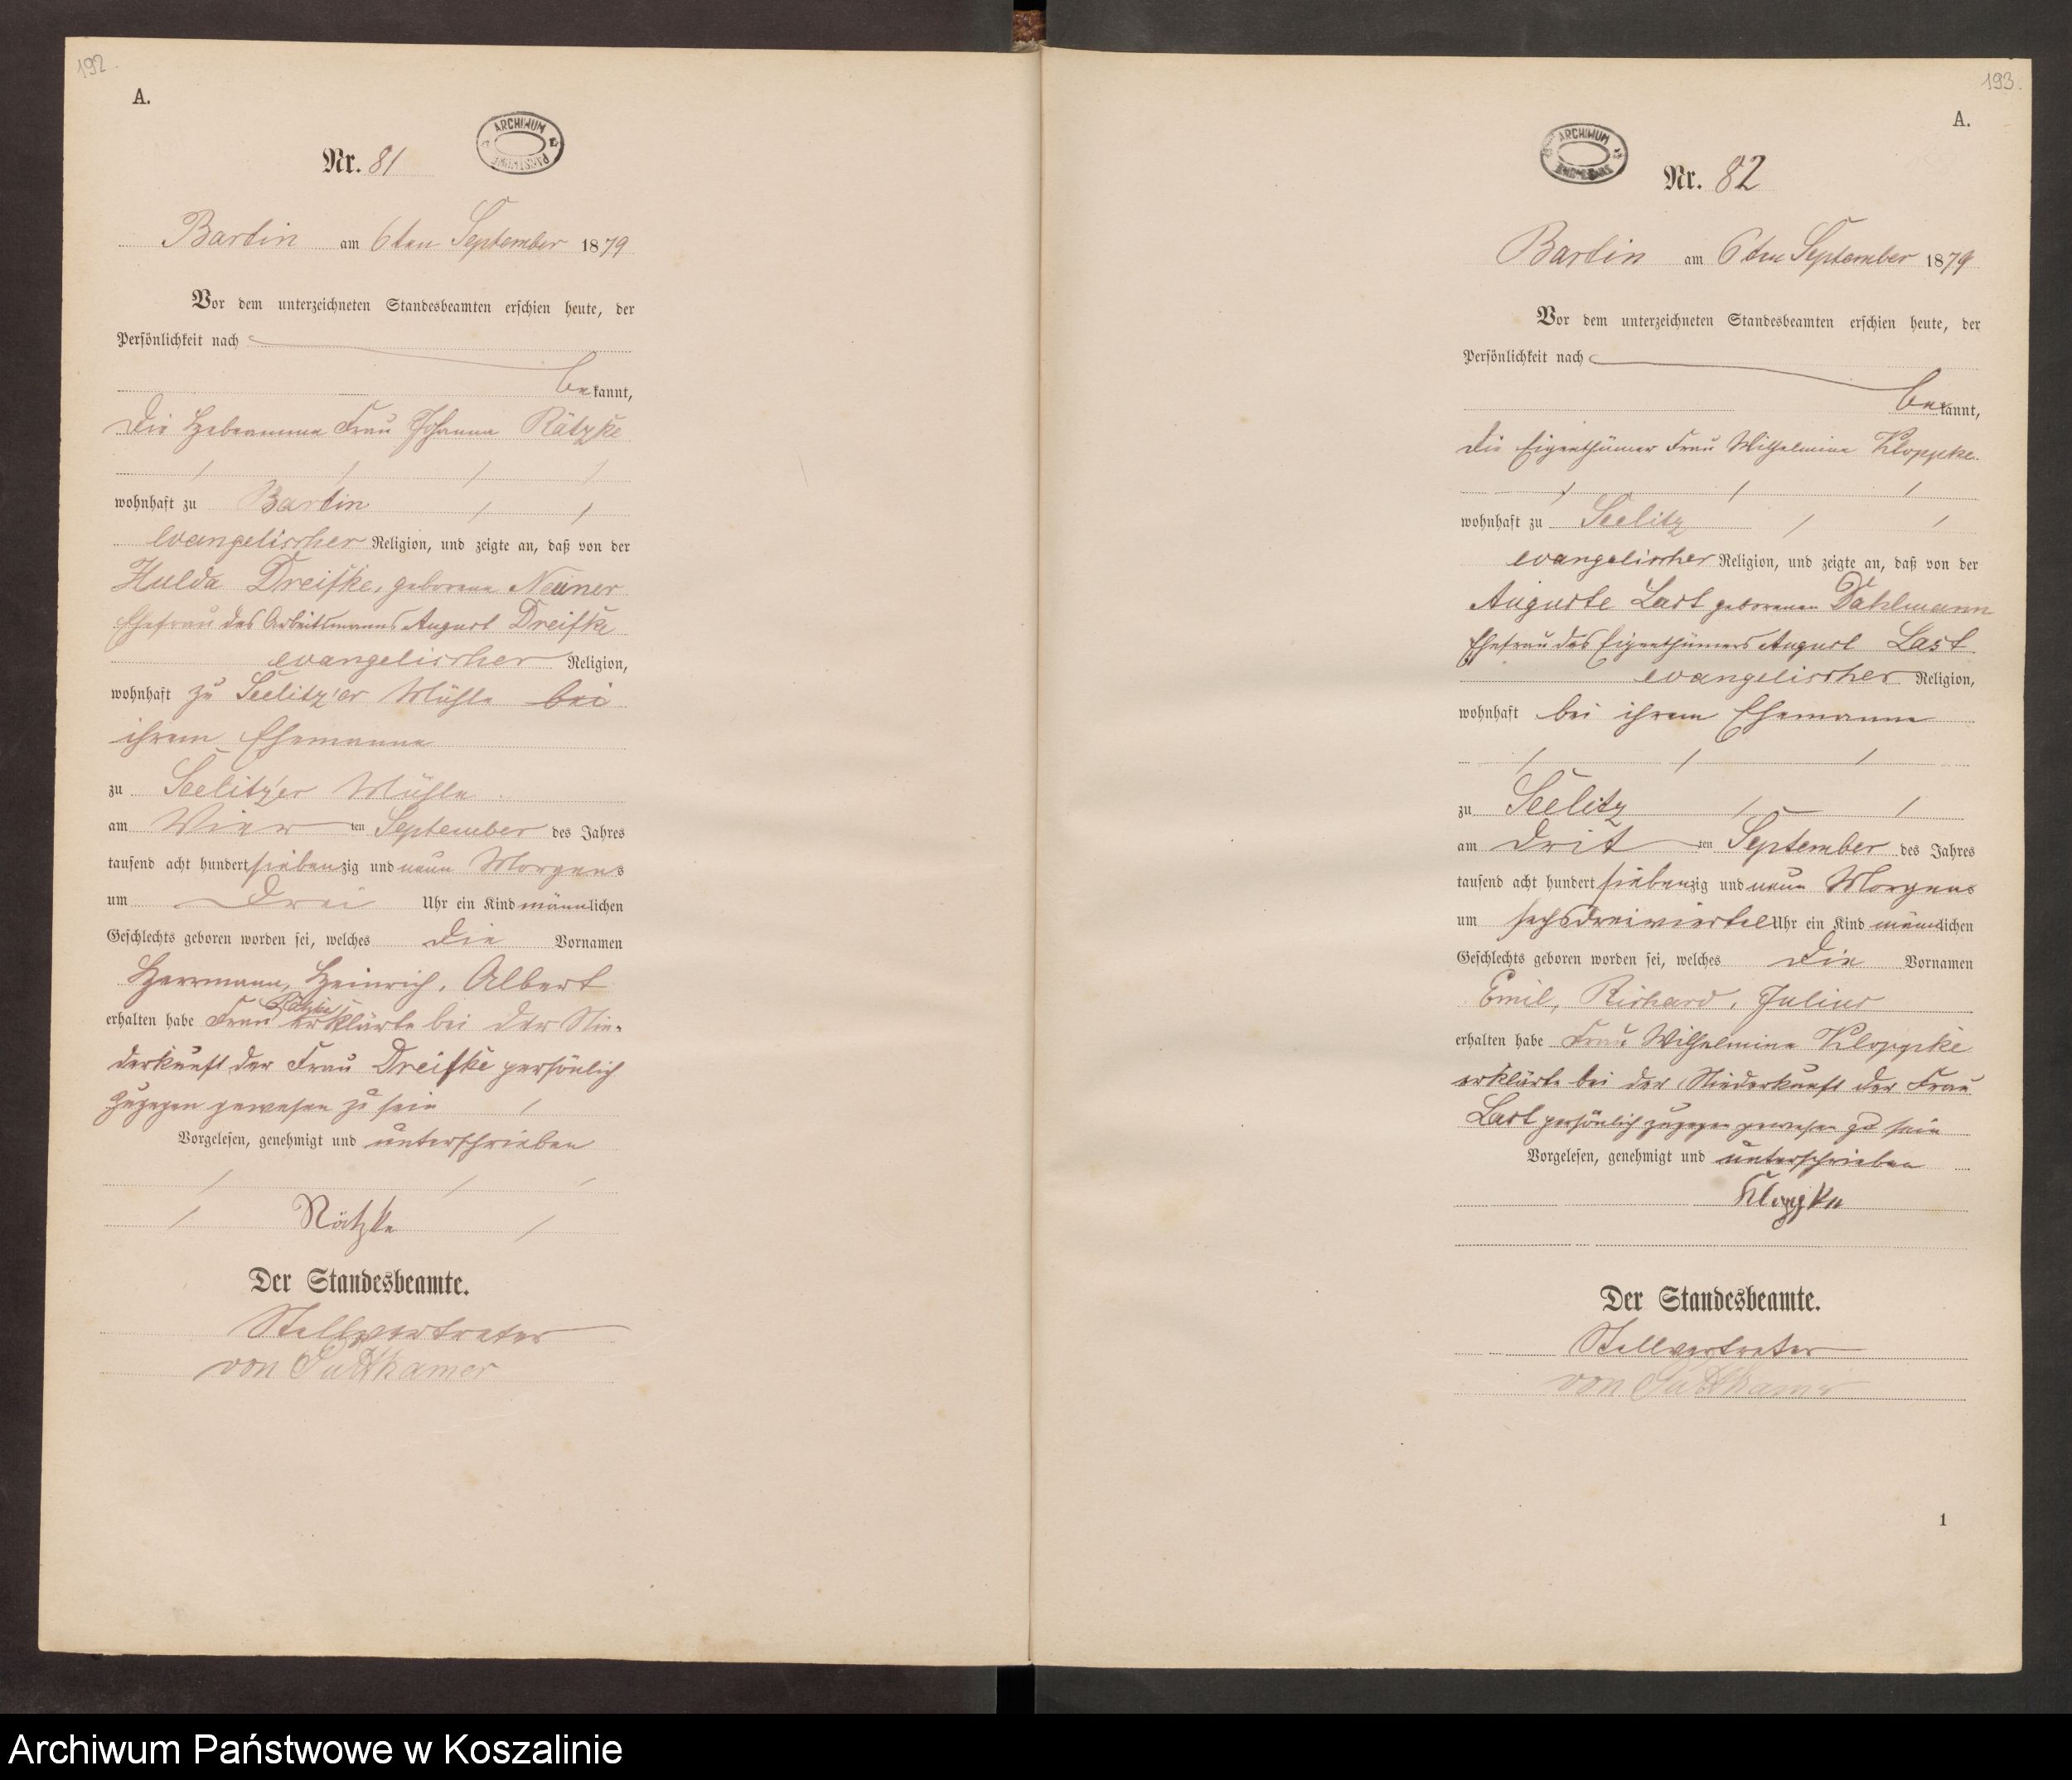 192.
A.
ARCHIWUM
Nr. 81
Bartin am 6ten September 1879
Vor dem unterzeichneten Standesbeamten erschien heute, der
Persönlichkeit nach
bekannt,
die Hebeamme Frau Johanna Rätzke
wohnhaft zu Bartin
evangelischer Religion, und zeigte an, daß von der
Hulda Dreifke, geborene Neuner
Ehefrau des Arbeitsmanns August Dreifke
evangelischer Religion,
wohnhaft zu Seelitz'er Mühle bei
ihrem Ehemanne
zu Seelitz'er Mühle
am Vier ten September des Jahres
tausend acht hundert siebenzig und neun Morgens
um Drei Uhr ein Kind männlichen
Geschlechts geboren worden sei, welches die Vornamen
Herrmann, Heinrich, Albert
erhalten habe Frau Rätzke erklärte bei der Nie-
derkunft der Frau Dreifke persönlich
zugegen gewesen zu sein
Vorgelesen, genehmigt und unterschrieben
Rätzke
Der Standesbeamte.
Stellvertreter
von Puttkamer
193.
A.
ARCHIWUM
Nr. 82
Bartin am 6ten September 1879
Vor dem unterzeichneten Standesbeamten erschien heute, der
Persönlichkeit nach
bekannt,
die Eigenthümer Frau Wilhelmine Kloppke.
wohnhaft zu Seelitz
evangelischer Religion, und zeigte an, daß von der
Auguste Last geborenen Dahlmann
Ehefrau des Eigenthümers August Last
evangelischer Religion,
wohnhaft bei ihrem Ehemanne
zu Seelitz
am Drit ten September des Jahres
tausend acht hundert siebenzig und neun Morgens
um sechsdreiviertel Uhr ein Kind männlichen
Geschlechts geboren worden sei, welches die Vornamen
Emil, Richard, Julius
erhalten habe Frau Wilhelmine Kloppke
erklärte bei der Niederkunft der Frau
Last persönlich zugegen gewesen zu sein
Vorgelesen, genehmigt und unterschrieben
Kloppke
Der Standesbeamte.
Stellvertreter
von Puttkamer
1
Archiwum Państwowe w Koszalinie